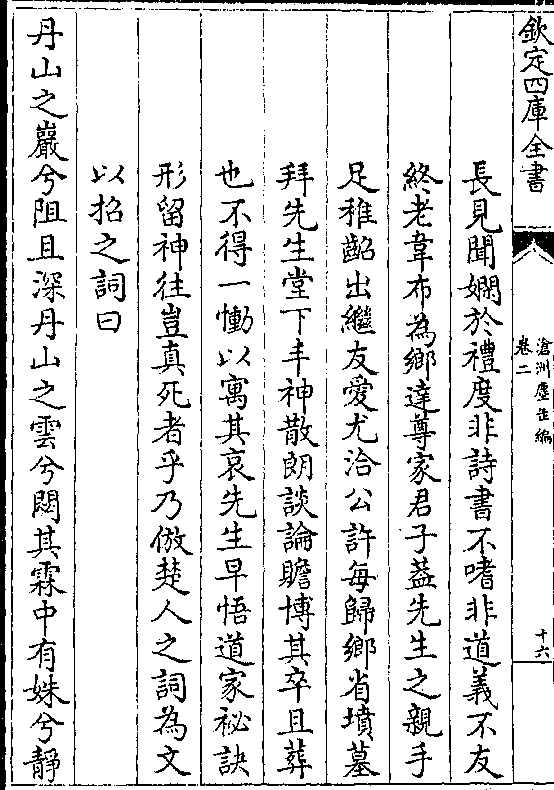 欽定四庫全書
滄洲塵缶編
卷二
十六
長見聞嫻於禮度非詩書不嗜非道義不友
終老韋布為鄉達尊家君子蓋先生之親手
足稚齠出繼友愛尤洽公許每歸鄉省墳墓
拜先生堂下丰神散朗談論贍博其卒且葬
也不得一慟以寓其哀先生早悟道家祕訣
形留神往豈真死者乎乃倣楚人之詞為文
以招之詞曰
丹山之巖兮阻且深丹山之雲兮閟其霖中有姝兮靜